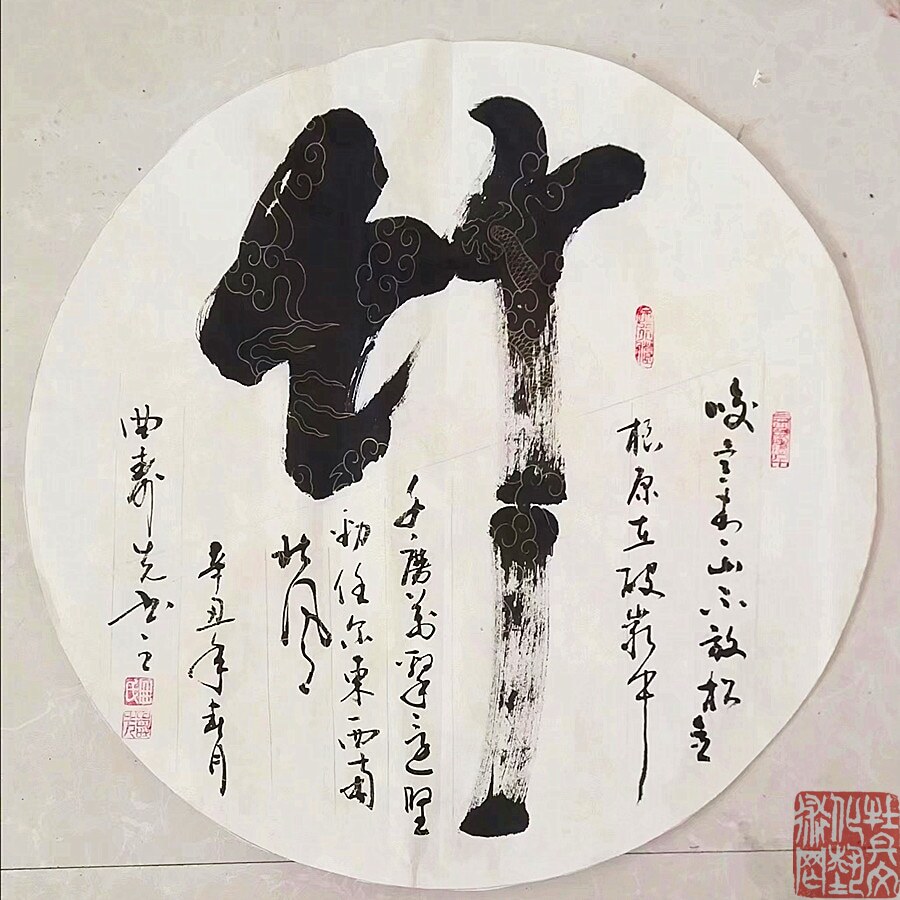 竹
咬定青山不放松立
根原在破巖中
千磨萬擊还坚
劲任尔東西南
北风
辛丑年春月
曲寿先书之